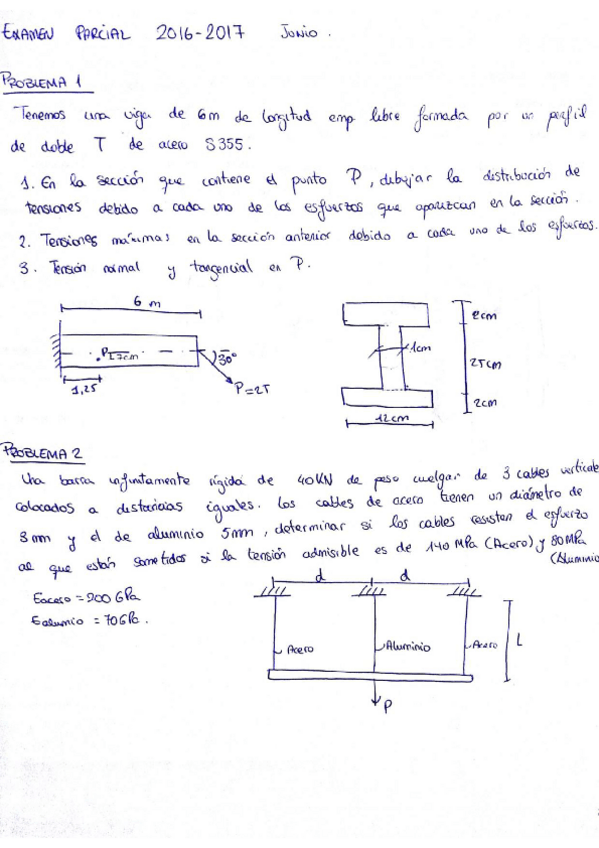 EXAMEN PARCIAL 2016-2017 JUNIO.
PROBLEMA 1
Tenemos una viga de 6m de longitud emp libre formada por un perfil
de doble T de acero S355.
1. En la sección que contiene el punto P, dibujar la distribución de
tensiones debido a cada uno de los esfuerzos que aparezcan en la sección.
2. Tensiones máximas en la sección anterior debido a cada uno de los esfuerzos.
3. Tensión normal y tangencial en P.
6 m
P 7cm
30°
1,25
P=2T
1cm
2cm
25cm
2cm
12cm
PROBLEMA 2
Una barra infinitamente rígida de 40KN de peso cuelgan de 3 cables verticale
colocados a distancias iguales. Los cables de acero tienen un diámetro de
3mm y el de aluminio 5mm, determinar si los cables resisten el esfuerzo
al que están sometidos si la tensión admisible es de 140 MPa (Acero) y 80MPa
(Aluminio
Eacero = 200 GPa
Ealuminio = 70GPa.
d
d
Acero
Aluminio
Acero
L
P